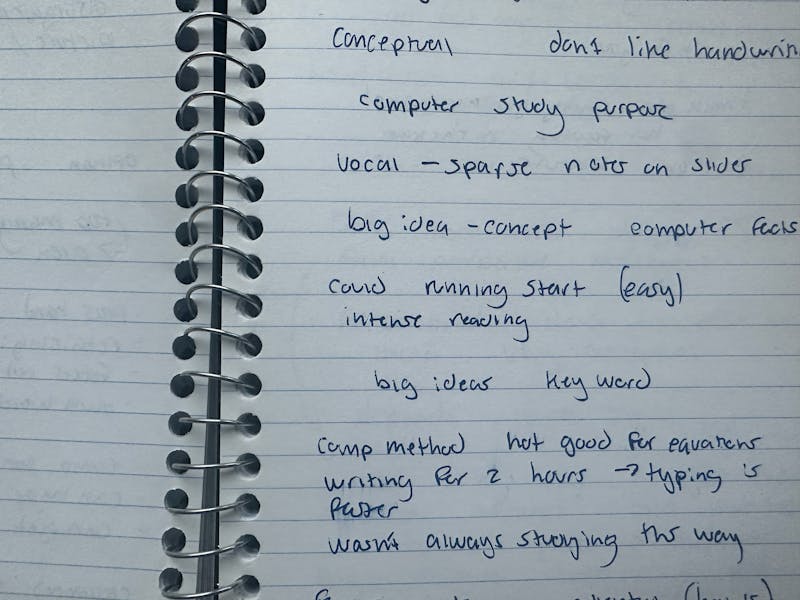 conceptual don't like handwritin
computer study purpose
vocal - sparse notes on slides
big idea - concept computer feels
could running start (easy)
intense reading
big ideas key word
comp method not good for equations
writing for 2 hours → typing is
faster
wasn't always studying this way